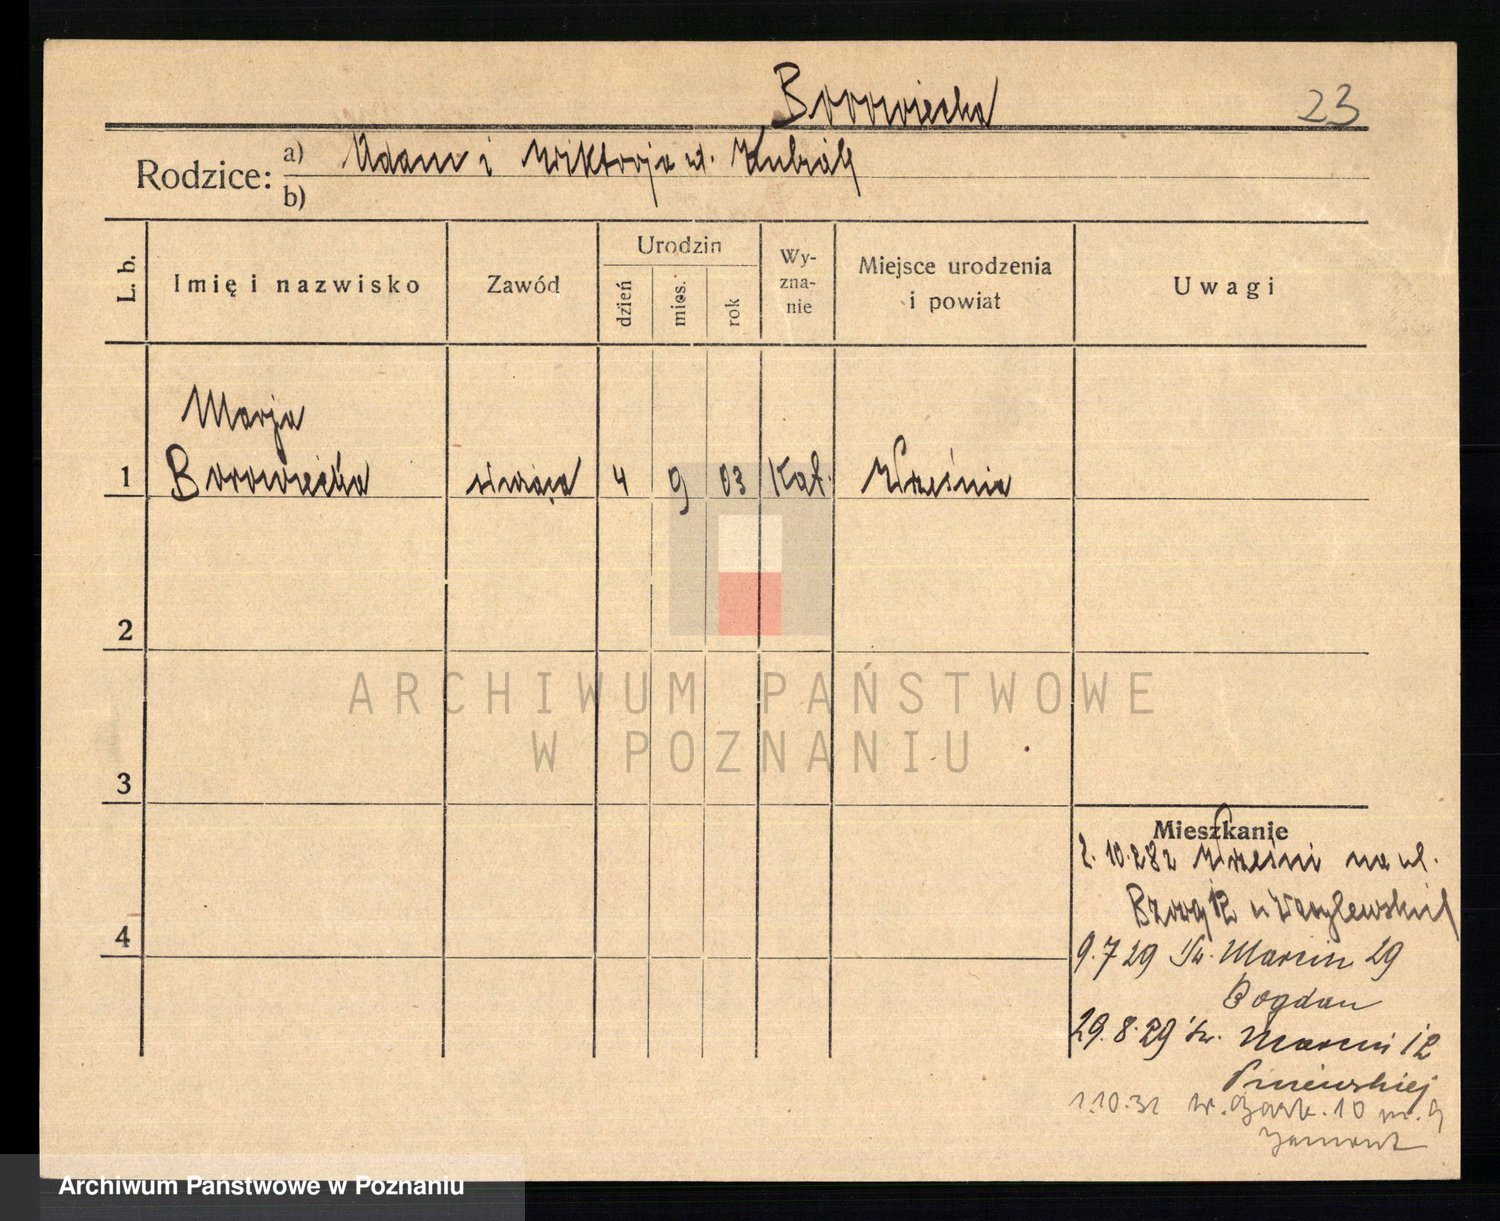 Borowiecka 23
Rodzice: a) Adam i Wiktorja ur. Kubiak
b)
L. b. Imię i nazwisko Zawód Urodzin dzień mies. rok Wyzna-nie Miejsce urodzenia i powiat Uwagi
Marja
1 Borowiecka 4 9 03 Kat. Września
2
3
4
ARCHIWUM PAŃSTWOWE
W POZNANIU
Mieszkanie
2.10.28 z Wrześni na ul.
12 u
9.7.29 Św. Marcin 29
Bogdan
29.8.29 św. Marcin 12
1.10.31 10 m. 9
Archiwum Państwowe w Poznaniu